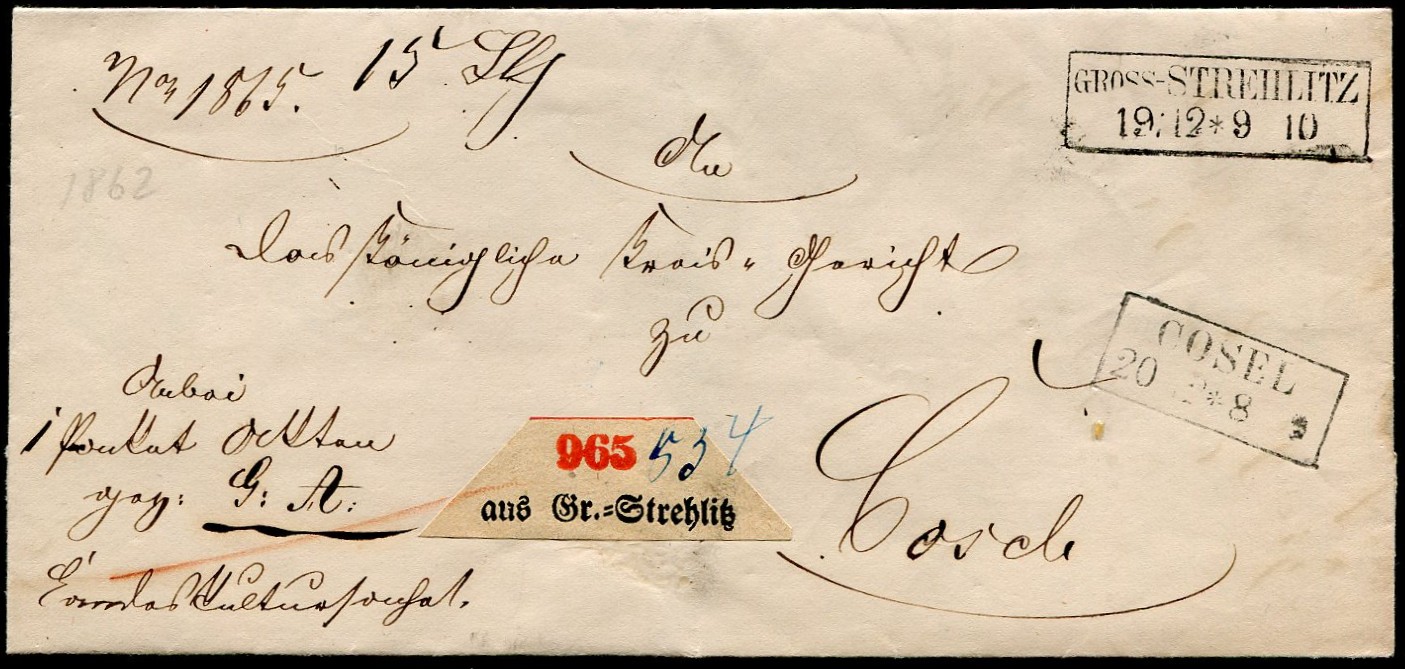 No 1865. 15 Sg
GROSS-STREHLITZ
19/12 * 9 10
1862
An
Das Königliche Kreis-Gericht
zu
COSEL
20 12 * 8 9
Anbei
1 Packet Ackten
gez: G: A:
965 534
aus Gr.=Strehlitz
Cosel